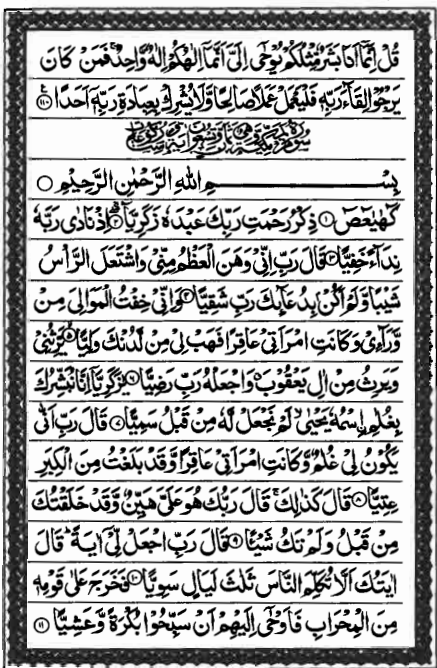 قُلْ اِنَّمَاۤ اَنَا بَشَرٌ مِّثْلُكُمْ يُوْحٰۤى اِلَيَّ اَنَّمَاۤ اِلٰهُكُمْ اِلٰهٌ وَّاحِدٌ ۚ فَمَنْ كَانَ
يَرْجُوْا لِقَآءَ رَبِّهٖ فَلْيَعْمَلْ عَمَلًا صَالِحًا وَّلَا يُشْرِكْ بِعِبَادَةِ رَبِّهٖۤ اَحَدًا ۝۱۱۰
بِسْمِ اللّٰهِ الرَّحْمٰنِ الرَّحِيْمِ ۝
كٓهٰيٰعٓصٓ ۝۱ ذِكْرُ رَحْمَتِ رَبِّكَ عَبْدَهٗ زَكَرِيَّا ۝۲ اِذْ نَادٰى رَبَّهٗ
نِدَآءً خَفِيًّا ۝۳ قَالَ رَبِّ اِنِّيْ وَهَنَ الْعَظْمُ مِنِّيْ وَاشْتَعَلَ الرَّاْسُ
شَيْبًا وَّلَمْ اَكُنْۢ بِدُعَآئِكَ رَبِّ شَقِيًّا ۝۴ وَاِنِّيْ خِفْتُ الْمَوَالِيَ مِنْ
وَّرَآءِيْ وَكَانَتِ امْرَاَتِيْ عَاقِرًا فَهَبْ لِيْ مِنْ لَّدُنْكَ وَلِيًّا ۝۵ يَّرِثُنِيْ
وَيَرِثُ مِنْ اٰلِ يَعْقُوْبَ ۖ وَاجْعَلْهُ رَبِّ رَضِيًّا ۝۶ يٰزَكَرِيَّاۤ اِنَّا نُبَشِّرُكَ
بِغُلٰمِ ِۨاسْمُهٗ يَحْيٰى ۙ لَمْ نَجْعَلْ لَّهٗ مِنْ قَبْلُ سَمِيًّا ۝۷ قَالَ رَبِّ اَنّٰى
يَكُوْنُ لِيْ غُلٰمٌ وَّكَانَتِ امْرَاَتِيْ عَاقِرًا وَّقَدْ بَلَغْتُ مِنَ الْكِبَرِ
عِتِيًّا ۝۸ قَالَ كَذٰلِكَ ۚ قَالَ رَبُّكَ هُوَ عَلَيَّ هَيِّنٌ وَّقَدْ خَلَقْتُكَ
مِنْ قَبْلُ وَلَمْ تَكُ شَيْـًٔا ۝۹ قَالَ رَبِّ اجْعَلْ لِّيْۤ اٰيَةً ۚ قَالَ
اٰيَتُكَ اَلَّا تُكَلِّمَ النَّاسَ ثَلٰثَ لَيَالٍ سَوِيًّا ۝۱۰ فَخَرَجَ عَلٰى قَوْمِهٖ
مِنَ الْمِحْرَابِ فَاَوْحٰۤى اِلَيْهِمْ اَنْ سَبِّحُوْا بُكْرَةً وَّعَشِيًّا ۝۱۱